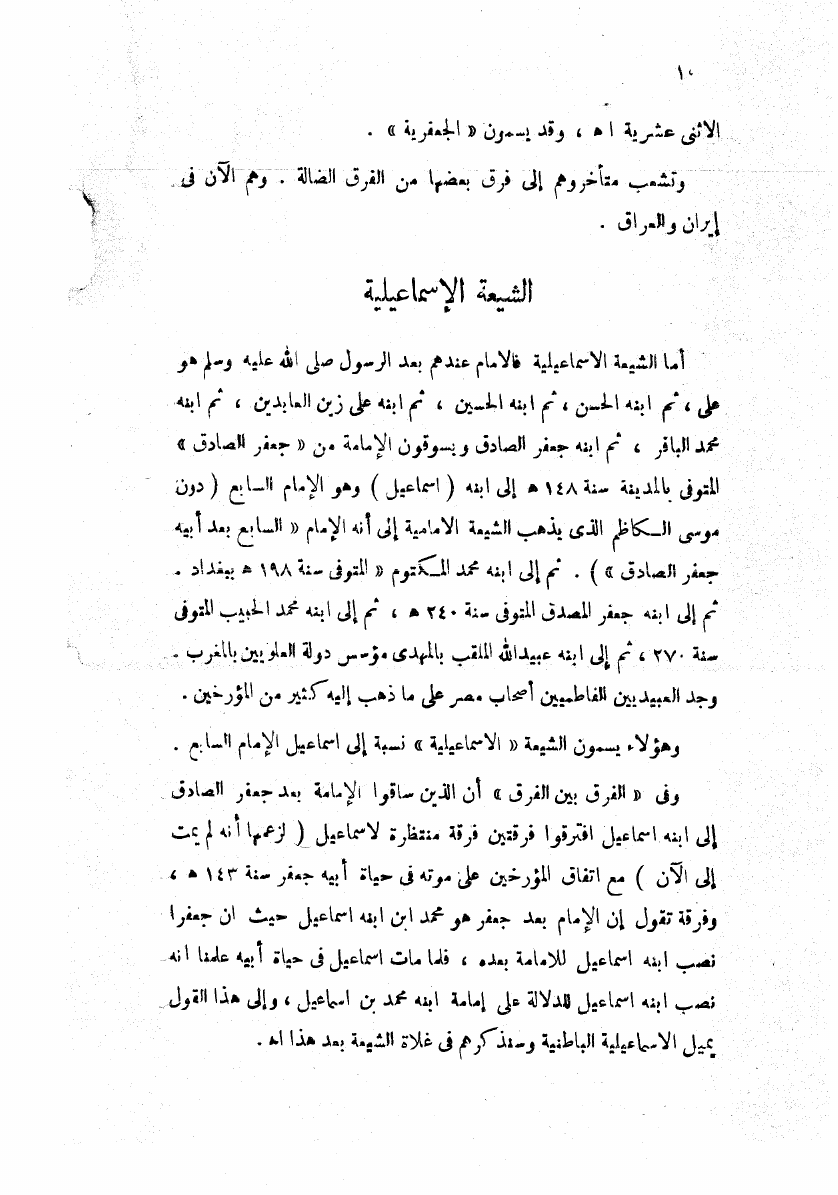 ١٠
الاثنى عشرية ا ه ، وقد يسمون « الجعفرية » .
وتشعب متأخروهم إلى فرق بعضها من الفرق الضالة . وهم الآن فى
إيران والعراق .
الشيعة الإسماعيلية
أما الشيعة الاسماعيلية فالامام عندهم بعد الرسول صلى الله عليه وسلم هو
على ، ثم ابنه الحسن ، ثم ابنه الحسين ، ثم ابنه على زين العابدين ، ثم ابنه
محمد الباقر ، ثم ابنه جعفر الصادق ويسوقون الإمامة من « جعفر الصادق »
المتوفى بالمدينة سنة ١٤٨ ه إلى ابنه ( اسماعيل ) وهو الإمام السابع ( دون
موسى الكاظم الذى يذهب الشيعة الامامية إلى أنه الإمام « السابع بعد أبيه
جعفر الصادق » ) . ثم إلى ابنه محمد المكتوم « المتوفى سنة ١٩٨ ه ببغداد .
ثم إلى ابنه جعفر المصدق المتوفى سنة ٢٤٠ ه ، ثم إلى ابنه محمد الحبيب المتوفى
سنة ٢٧٠ ، ثم إلى ابنه عبيدالله الملقب بالمهدى مؤسس دولة العلويين بالمغرب .
وجد العبيديين الفاطميين أصحاب مصر على ما ذهب إليه كثير من المؤرخين .
وهؤلاء يسمون الشيعة « الاسماعيلية » نسبة إلى اسماعيل الإمام السابع .
وفى « الفرق بين الفرق » أن الذين ساقوا الإمامة بعد جعفر الصادق
إلى ابنه اسماعيل افترقوا فرقتين فرقة منتظرة لاسماعيل ( لزعمها أنه لم يمت
إلى الآن ) مع اتفاق المؤرخين على موته فى حياة أبيه جعفر سنة ١٤٣ ه ،
وفرقة تقول إن الإمام بعد جعفر هو محمد ابن ابنه اسماعيل حيث ان جعفرا
نصب ابنه اسماعيل للامامة بعده ، فلما مات اسماعيل فى حياة أبيه علمنا انه
نصب ابنه اسماعيل للدلالة على إمامة ابنه محمد بن اسماعيل ، وإلى هذا القول
يميل الاسماعيلية الباطنية وسنذكرهم فى غلاة الشيعة بعد هذا اه .